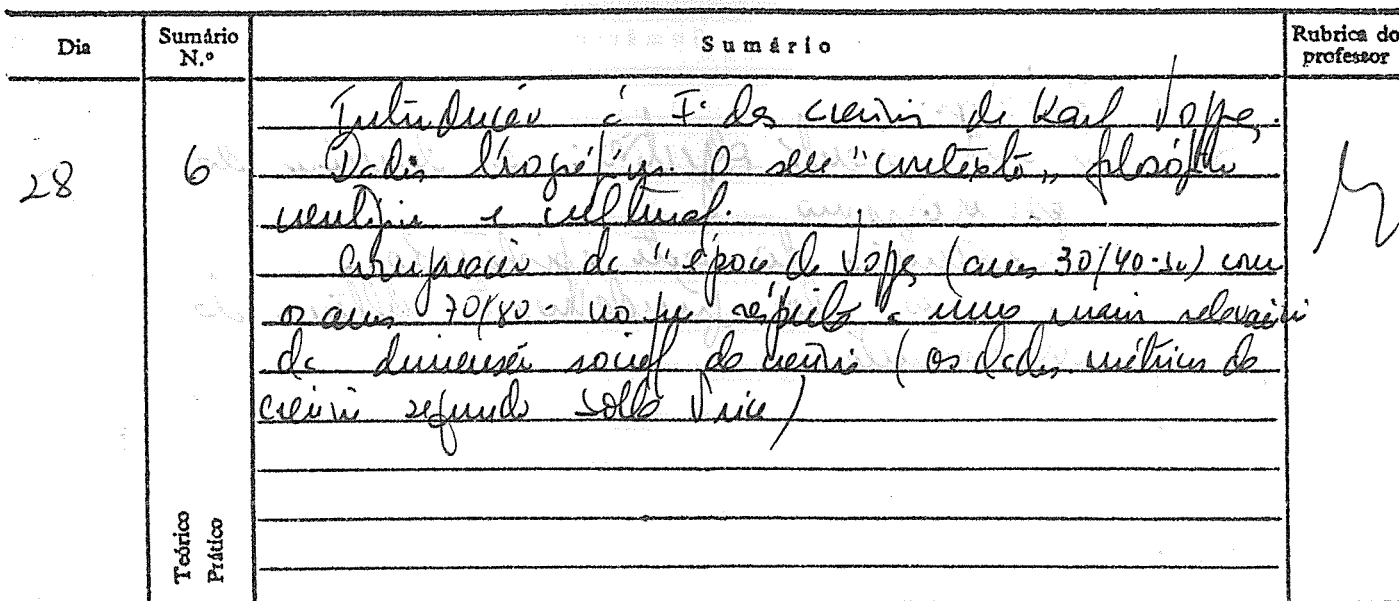 Dia Sumário N.º Sumário Rubrica do professor
28 6 Introdução à F. das ciências de Karl Popper.
Dados biográficos. O seu "contexto" filosófico
científico e cultural.
Comparação da "época de Popper (anos 30/40-50) com
os anos 70/80 - no que respeita a uma maior relevância
da dimensão social da ciência (os dados métricos da
ciência segundo Solla Price)
Teórico
Prático